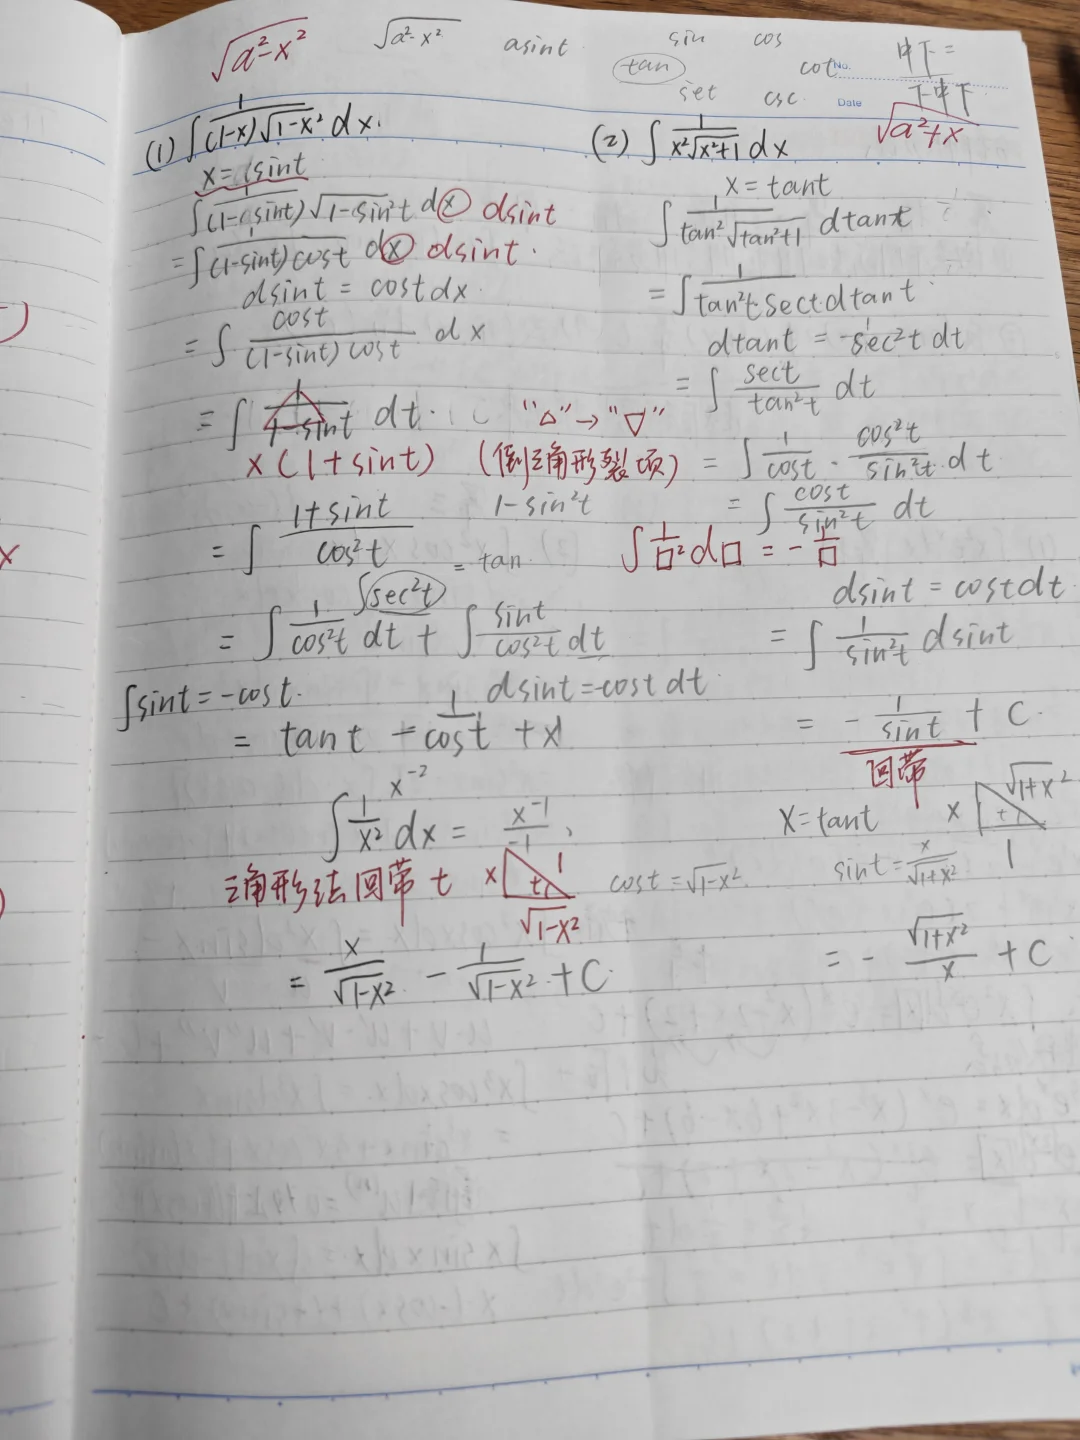 √(a²-x²)    √(a²-x²)    asint    sin    cos
tan    cot
set    csc
No.
Date
中下=
下中下
√(a²+x)
(1) ∫ 1/((1-x)√(1-x²)) dx.
x = asint
∫ 1/((1-asint)√(1-sin²t)) dx dsint
= ∫ 1/((1-sint)cost) dx dsint.
dsint = costdx.
= ∫ cost/((1-sint)cost) dx
= ∫ 1/(1-sint) dt.    "△"→"▽"
×(1+sint)    (倒三角形裂项)
1-sin²t
= ∫ (1+sint)/cos²t    = tan
∫sec²t
= ∫ 1/cos²t dt + ∫ sint/cos²t dt
∫sint = -cost.    dsint=-costdt
= tant + 1/cost + x
x⁻²
∫ 1/x² dx = x⁻¹/-1
三角形法回带t    x    t    1    cost=√(1-x²)
√(1-x²)
= x/√(1-x²) - 1/√(1-x²) + C
(2) ∫ 1/(x²√(x²+1)) dx
x = tant
∫ 1/(tan²√(tan²+1)) dtant
= ∫ 1/(tan²t·sect) dtant
dtant = sec²t dt
= ∫ sect/tan²t dt
= ∫ 1/cost · cos²t/sin²t dt
= ∫ cost/sin²t dt
∫ 1/□² d□ = - 1/□
dsint = costdt.
= ∫ 1/sin²t dsint
= - 1/sint + C.
回带
x=tant    x    t    √(1+x²)
1
sint= x/√(1+x²)
= - √(1+x²)/x + C